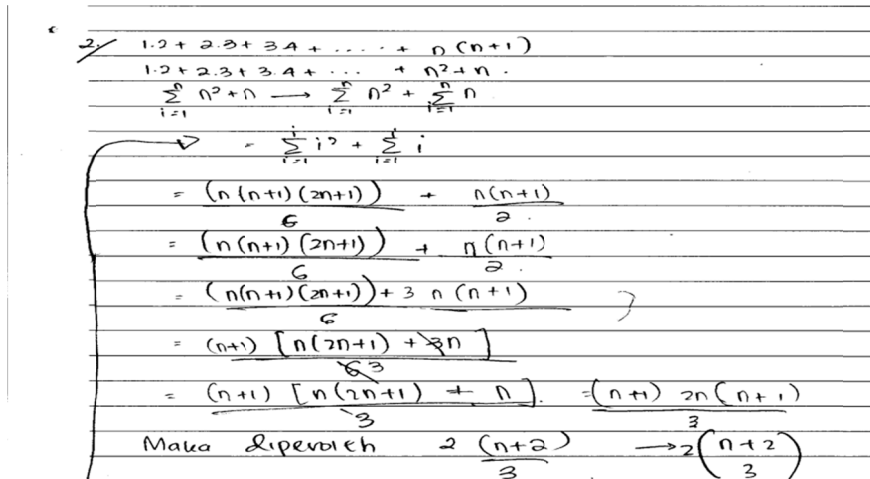 2. 1.2 + 2.3 + 3 4 + ..... + n (n+1)
1.2 + 2.3 + 3.4 + ... + n² + n .
∑_{i=1}^{n} n² + n → ∑_{i=1}^{n} n² + ∑_{i=1}^{n} n
= ∑_{i=1}^{i} i² + ∑_{i=1}^{i} i
= (n (n+1) (2n+1))/6 + n(n+1)/2 .
= (n (n+1) (2n+1))/6 + n(n+1)/2 .
= ((n(n+1)(2n+1)) + 3 n (n+1))/6
= (n+1) [n(2n+1) + 3n]/6 3
= (n+1) [n(2n+1) + n]/3 . = (n+1) 2n(n+1)/3
Maka diperoleh 2 (n+2)/3 → 2 ((n+2)/3)